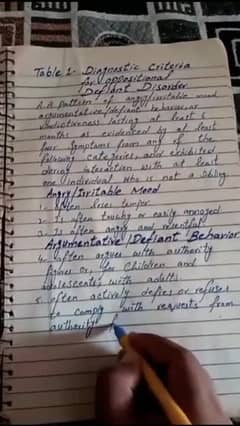 Table 1- Diagnostic Criteria
for oppositional
Defiant Disorder
A. A pattern of angry/irritable mood
argumentative/defiant behavior, or
vindictiveness lasting at least 6
months as evidenced by at least
four symptoms from any of the
following categories, and exhibited
during interaction with at least
one individual who is not a sibling.
Angry/Irritable Mood
1. often loses temper
2. Is often touchy or easily annoyed
3. Is often angry and resentful
Argumentative/Defiant Behavior
4. often argues with authority
figures or, for children and
adolescents with adults
5. often actively defies or refuses
to comply with requests from
authority